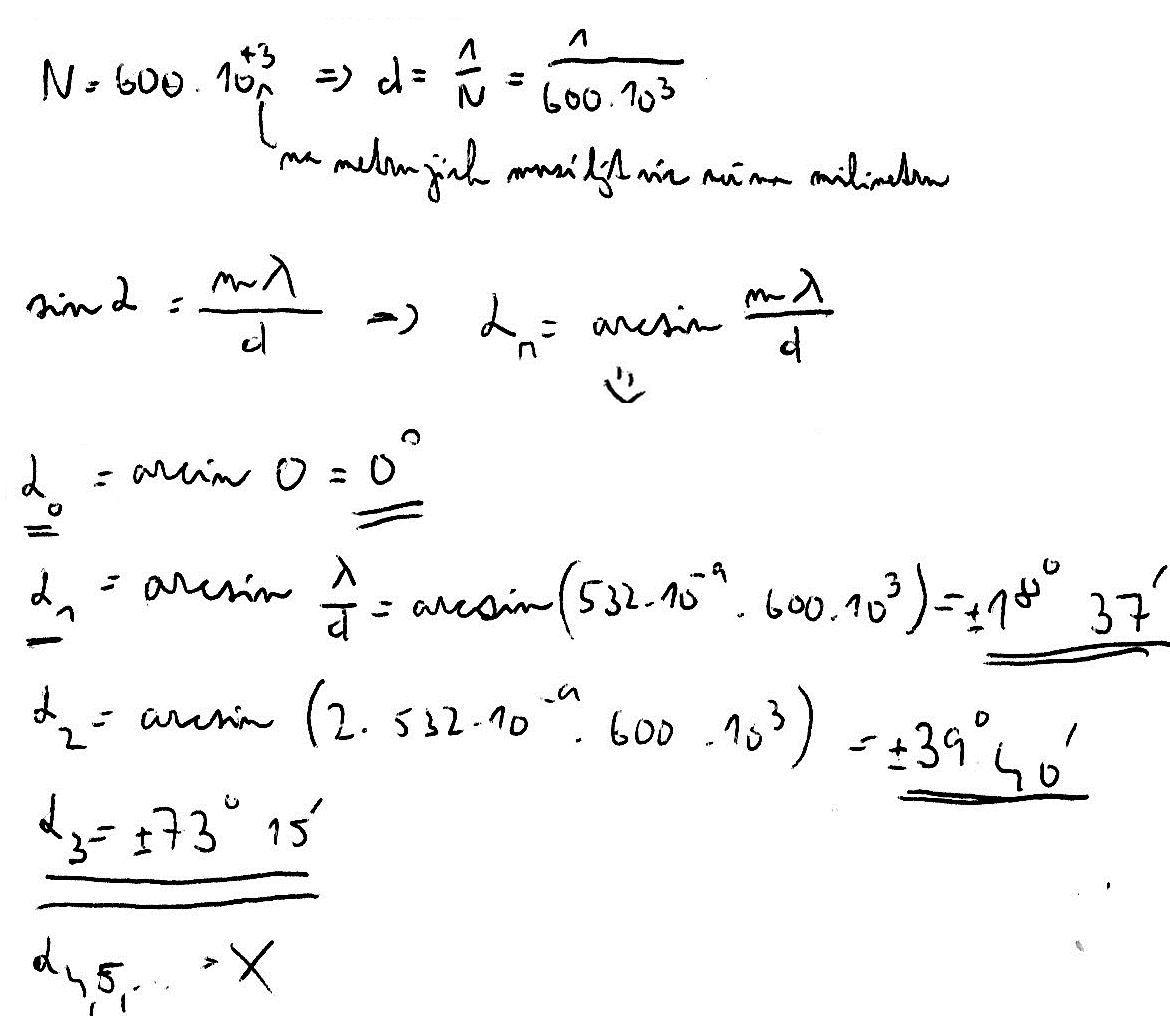 N = 600 · 10⁺³ ⇒ d = 1/N = 1/(600 · 10³)
na metru jich musí být víc než na milimetru
sin α = mλ/d ⇒ αₙ = arcsin mλ/d
α₀ = arcsin 0 = 0°
α₁ = arcsin λ/d = arcsin(532 · 10⁻⁹ · 600 · 10³) = ±18° 37′
α₂ = arcsin (2 · 532 · 10⁻⁹ · 600 · 10³) = ±39° 40′
α₃ = ±73° 15′
α₄,₅,... → X